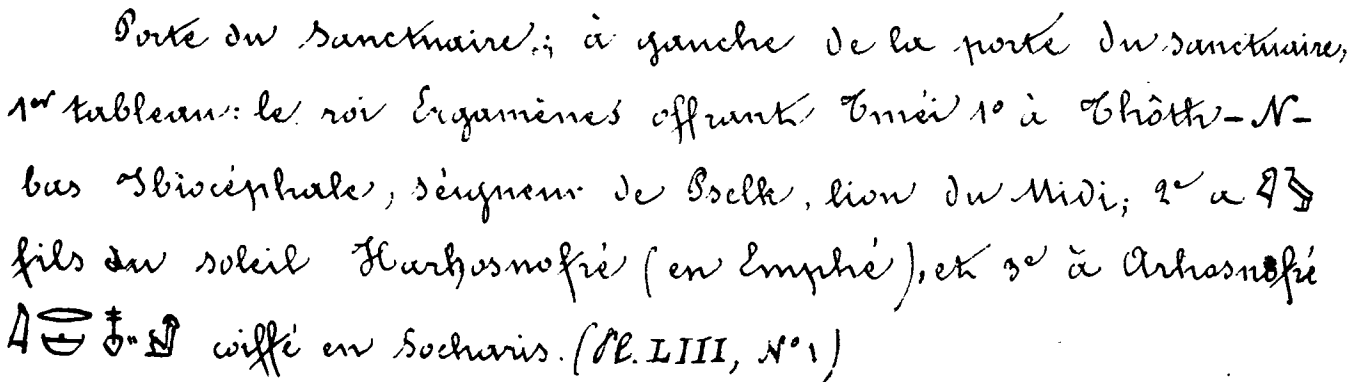 Porte du sanctuaire.; à gauche de la porte du sanctuaire,
1er tableau: le roi Ergamènes offrant Tméi 1° à Thôth-N-
bas Ibiocéphale, séigneur de Pselk, lion du Midi; 2° a
fils du soleil Harhosnofré (en Emphé), et 3° à Arhosnofré
coiffé en Socharis. (Pl. LIII, N° 1)